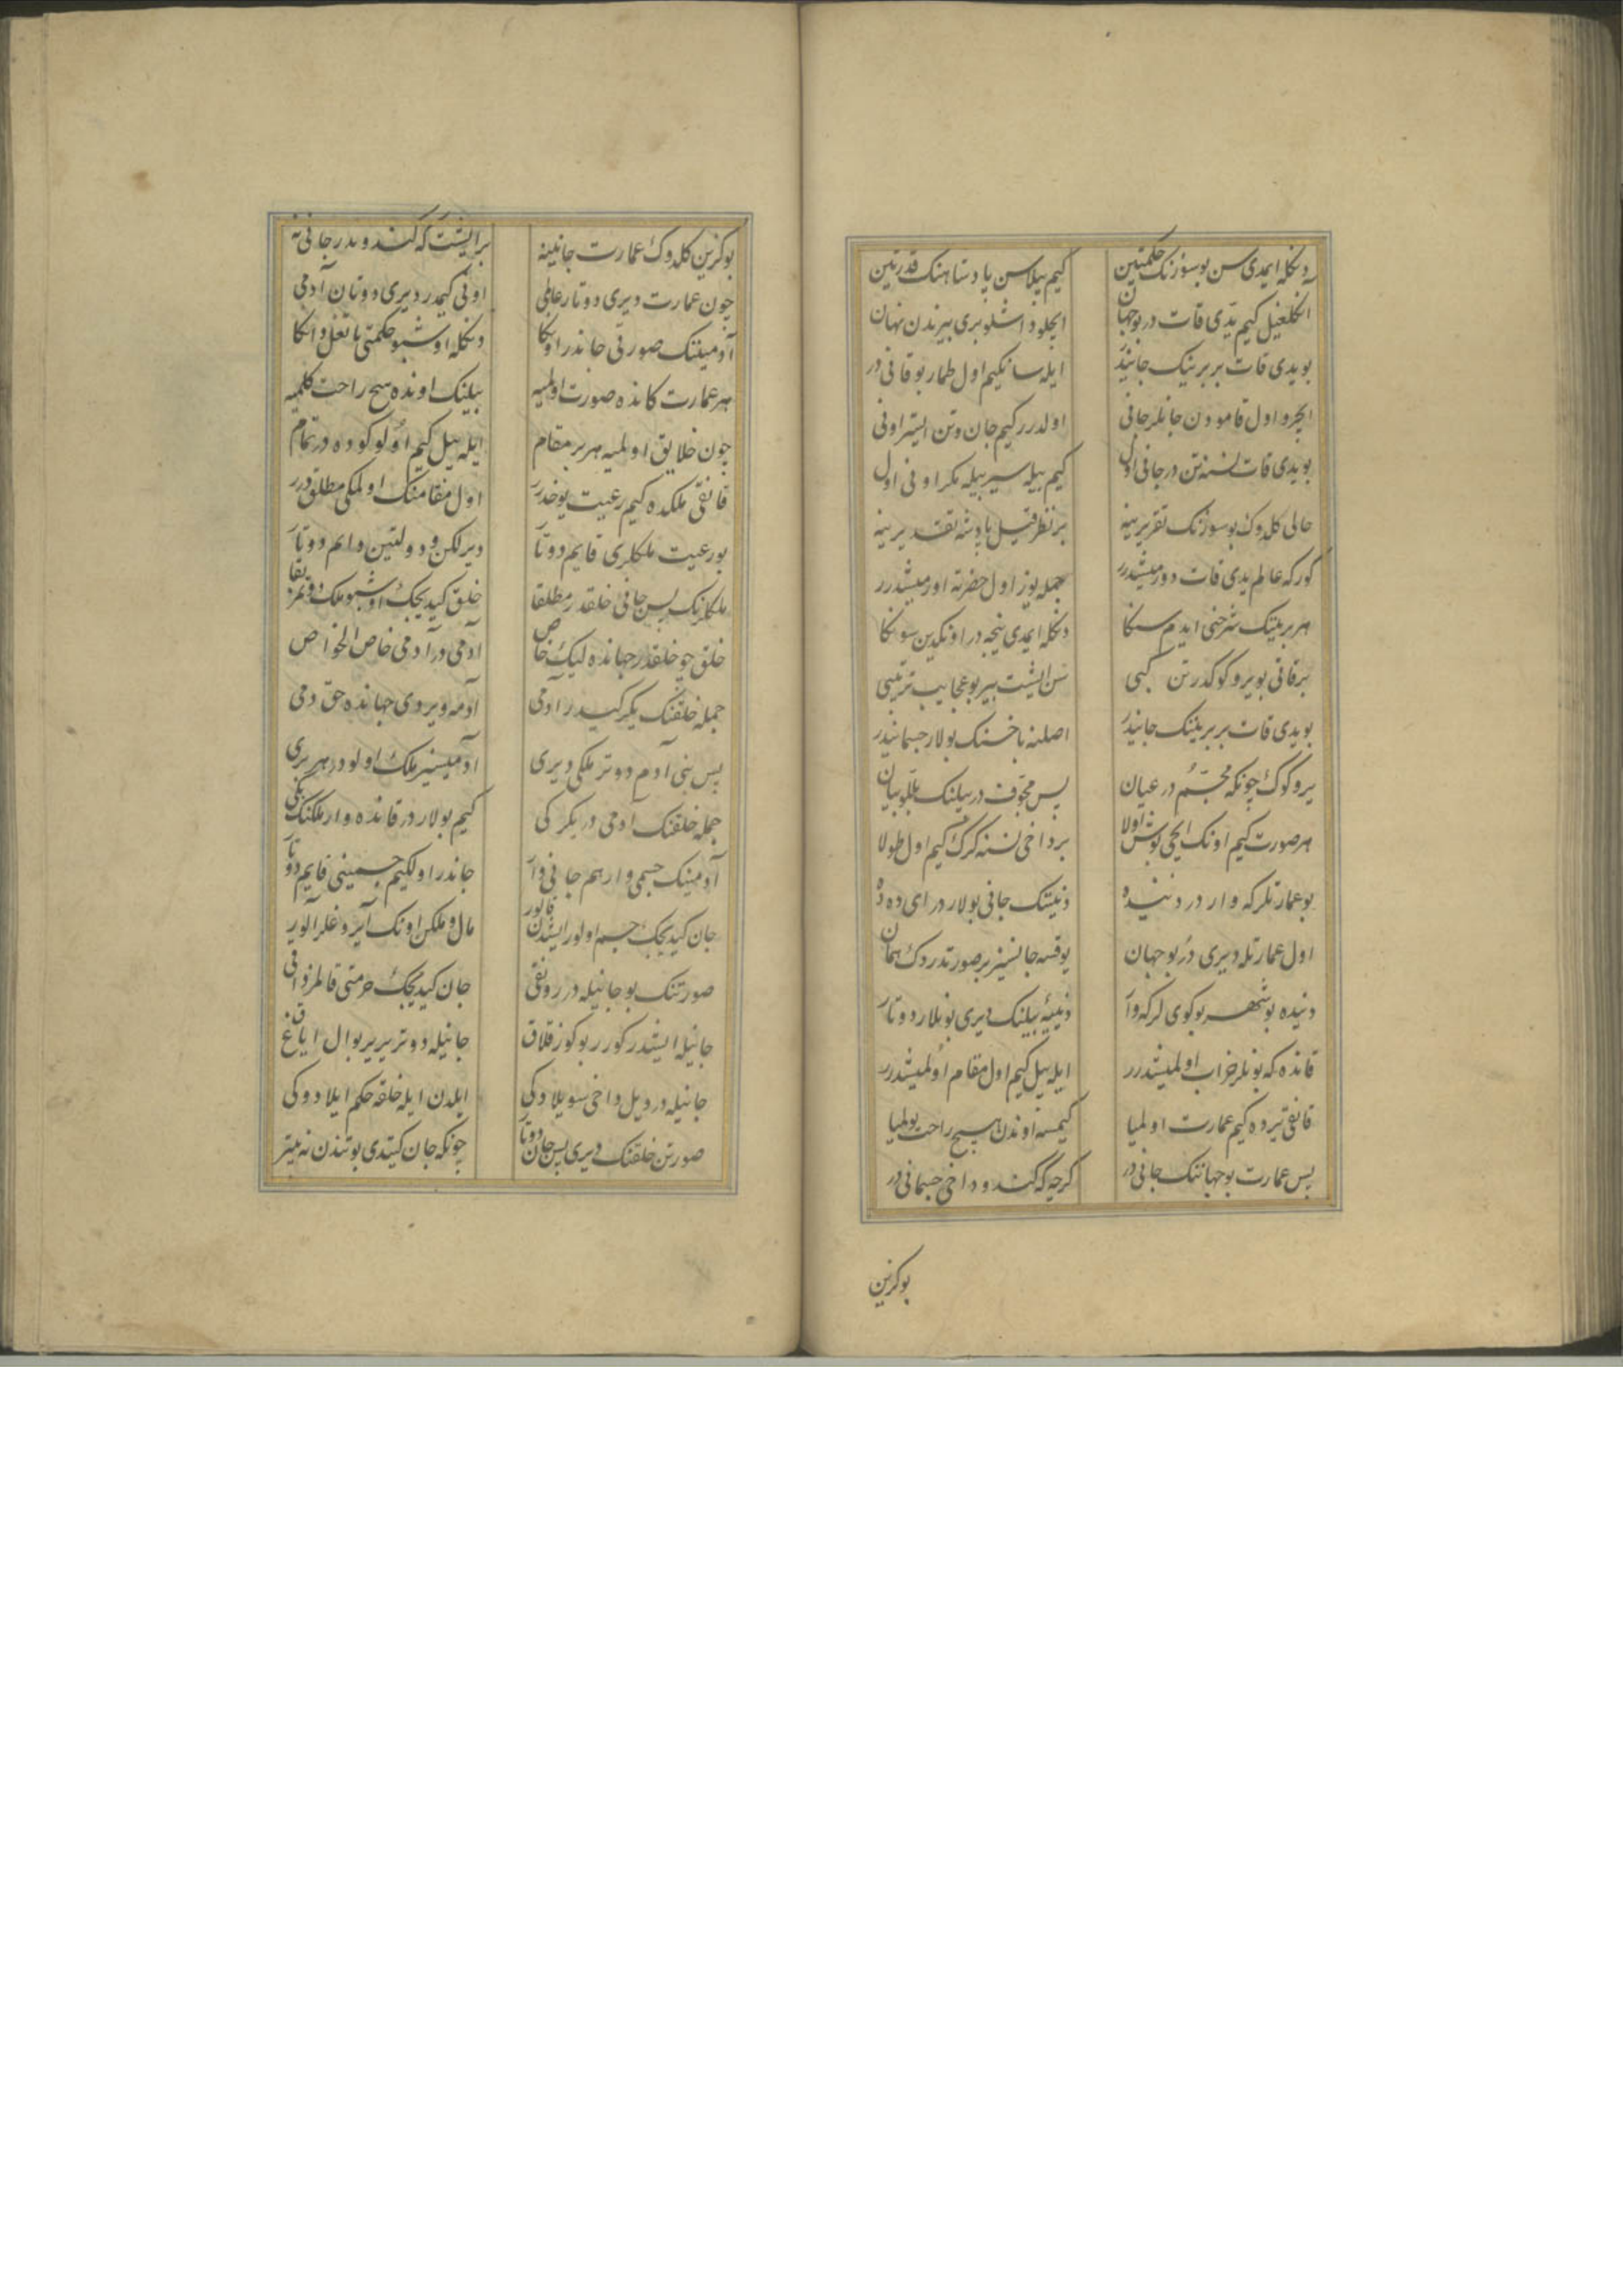 دنکله ایمدی سن بو سوزنک حکمتین	کیم بیلاسن پادشاهنک قدرتین
انکلغیل کیم یدی قات در بو جهان	ایچلو داشلو بری بیرندن نهان
بو یدی قات بربرینک جانیدر	ایله سانکیم اول طمار بو قانی در
ایچرو اول قامودن جانلر جانی	اولدرر کیم جان و تن ایستر اونی
بو یدی قات نسنه تن در جانی اول	کیم بیله سیر بیله مکر اونی اول
حالی کلدوک بو سوزنک تقریرینه	بر نظر قیل پادشه تقدیرینه
کور که عالم یدی قات دورمیشدرر	جمله یوز اول حضرته اورمیشدرر
هر برینک شرحنی ایدم سنکا	دنکله ایمدی نیجه در اونکدین سونکا
بر قاتی بو یرو کوکدر تن کبی	سن ایشیت بیر بو عجایب ترتیبی
بو یدی قات بربرینک جانیدر	اصلنه باخسنک بولار جسمانیدر
یرو کوک چونکه مجسم در عیان	پس مجوف در بیلنک بللو بیان
هر صورت کیم اونک ایچی بوش اولا	بر داخی نسنه کرک کیم اول طولا
بو عمارتلر که وار در دنیده	دنیینک جانی بولار در ای دده
اول عمارتله دیری در بو جهان	یوقسه جانسیز بر صورتدر دک همان
دنیده بو شهر بو کوی لر که وار	دنییه بیلنک دیری بونلار دوتار
قانده که بونلر خراب اولمیشدرر	ایله بیل کیم اول مقام اولمیشدرر
قانقی یرده کیم عمارت اولمیا	کیمسه اوندن هیچ راحت بولمیا
پس عمارت بو جهاننک جانی در	کرچه که کندو داخی جسمانی در
بو کزین
بو کزین کلدوک عمارت جانینه	بر ایشیت که کندویدر جانی نه
چون عمارت دیری دوتار عالمی	اونی کیمدر دیری دوتان آدمی
آدمیننک صورتی جاندر اونکا	دنکله اوشبو حکمتی باتغل دانکا
هر عمارت کانده صورت اولمیه	بیلنک اونده هیچ راحت کلمیه
چون خلایق اولمیه هر بر مقام	ایله بیل کیم اولو کوده در تمام
قانقی ملکده کیم رعیت یوخدرر	اول مقامنک اولمکی مطلق درر
بو رعیت ملکلری قایم دوتا	دیرلکن و دولتین دایم دوتا
ملکلرنک پس جانی خلقدر مطلقا	خلق کیدیجک اوشبو ملک دوتمز بقا
خلق چو خلقدر جهانده لیک خاص	آدمی در آدمی خاص الخواص
جمله خلقنک یکرکیدر آدمی	آدمه ویردی جهانده حق دمی
پس بنی آدم دوتر ملکی دیری	آدمیسیز ملک اولودر هر بری
جمله خلقنک آدمی در یکرکی	کیم بولار در قانده وار ملکنک بکی
آدمینک جسمی وار هم جانی وار	جاندر اولکیم جسمینی قایم دوتار
جان کیدیجک جسم اولور ایشدن قالور	مال و ملکن اونک آیروغلر آلور
صورتنک بو جانیله در رونقی	جان کیدیجک حرمتی قالمز واقی
جانیله ایشیدر کورر بو کوز قلاق	جانیله دوتر یریر بو ال ایاغ
جانیله در دیل داخی سویلادوکی	ایلدن ایله خلقه حکم ایلادوکی
صورتن خلقنک دیری پس جان دوتار	چونکه جان کیتدی بو تندن نه بیتر